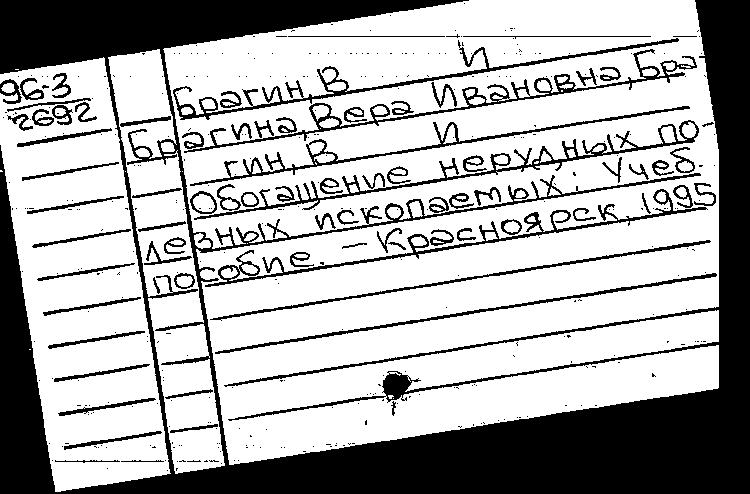 96-3
2692
Брагин, В И
Брагина, Вера Ивановна, Бра-
гин, В И
Обогащение нерудных по-
лезных ископаемых: Учеб.
пособие. – Красноярск, 1995